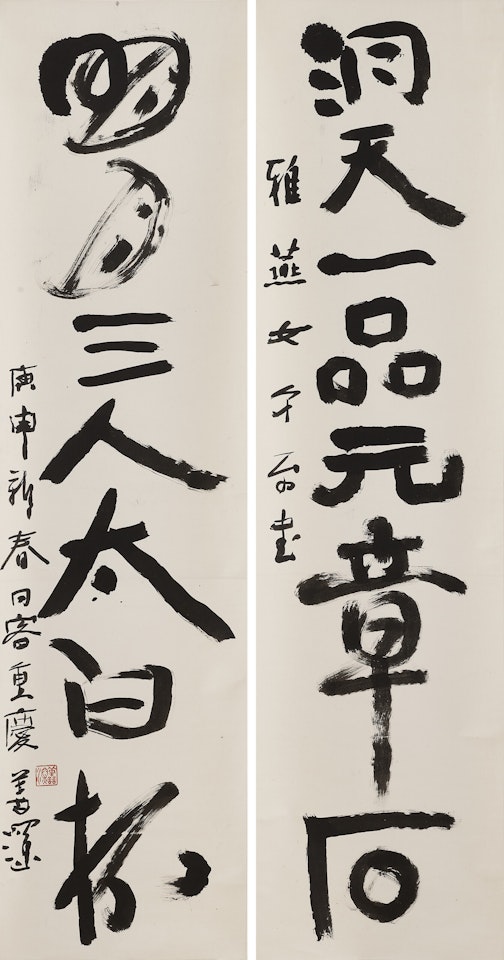 洞天一品元章石
雅燕女書
明月三人太白杯
庚申新春同客重慶